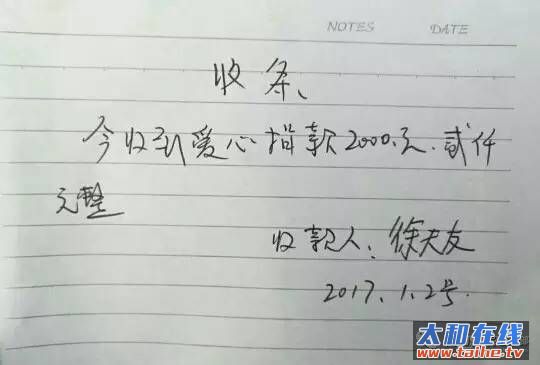 NOTES DATE
收条、
今收到爱心捐款2000.元.贰仟
元整
收款人:徐天友
2017.1.2号.
太和在线
www.taihe.tv